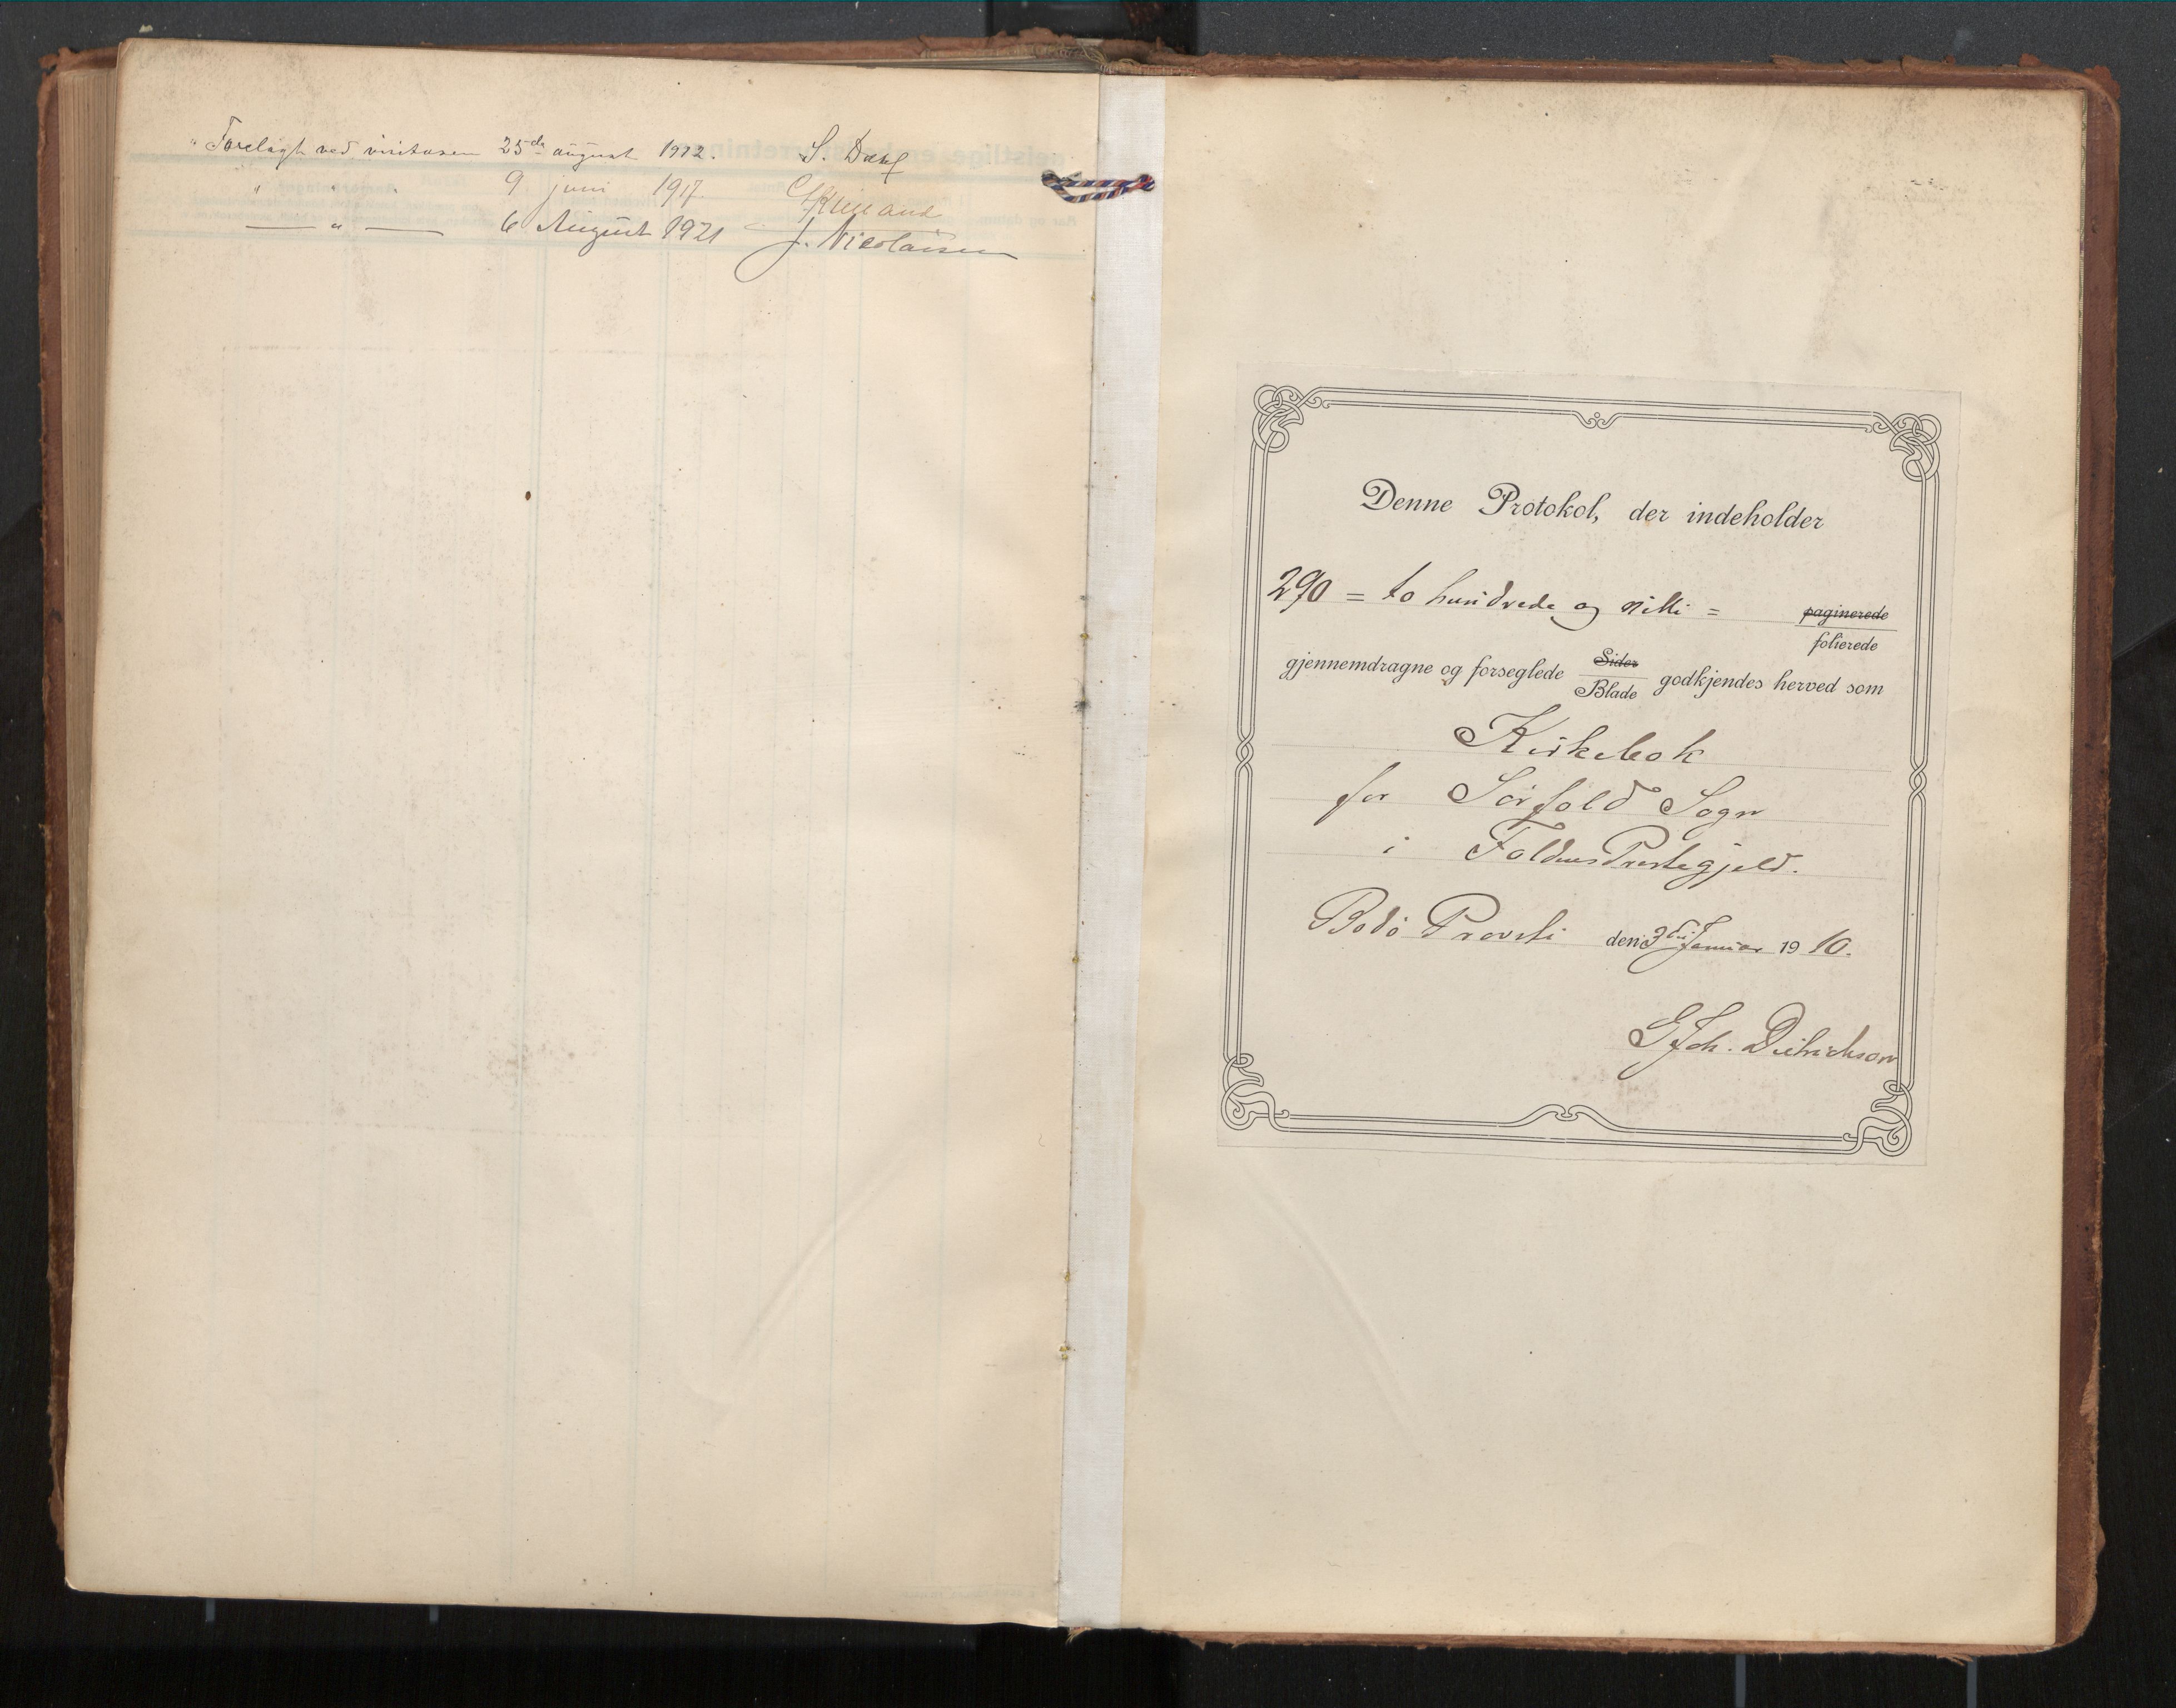 " Forelagt ved visitasen 25de august 1912. S. Dahl
" " " 9 juni 1917.
— " — 6 August 1921 J. Nicolaisen
Denne Protokol, der indeholder
290 = to hundrede og nitti = paginerede
folierede
gjennemdragne og forseglede Sider
Blade godkjendes herved som
Kirkebok
for Sörfold Sogn
i Foldens Prestegjeld.
Bodö Provsti den 3die Januar 1910.
G Joh. Dietrichson